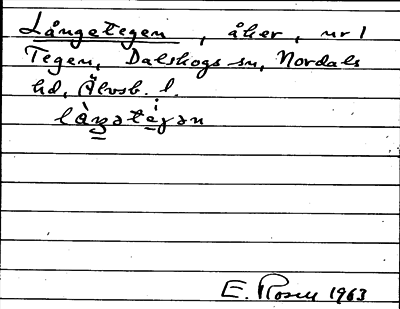 Långetegen, åker, nr 1
Tegen, Dalskogs sn, Nordals
hd, Älvsb. l.
là̱ŋətè̱gən
E. Rosell 1963